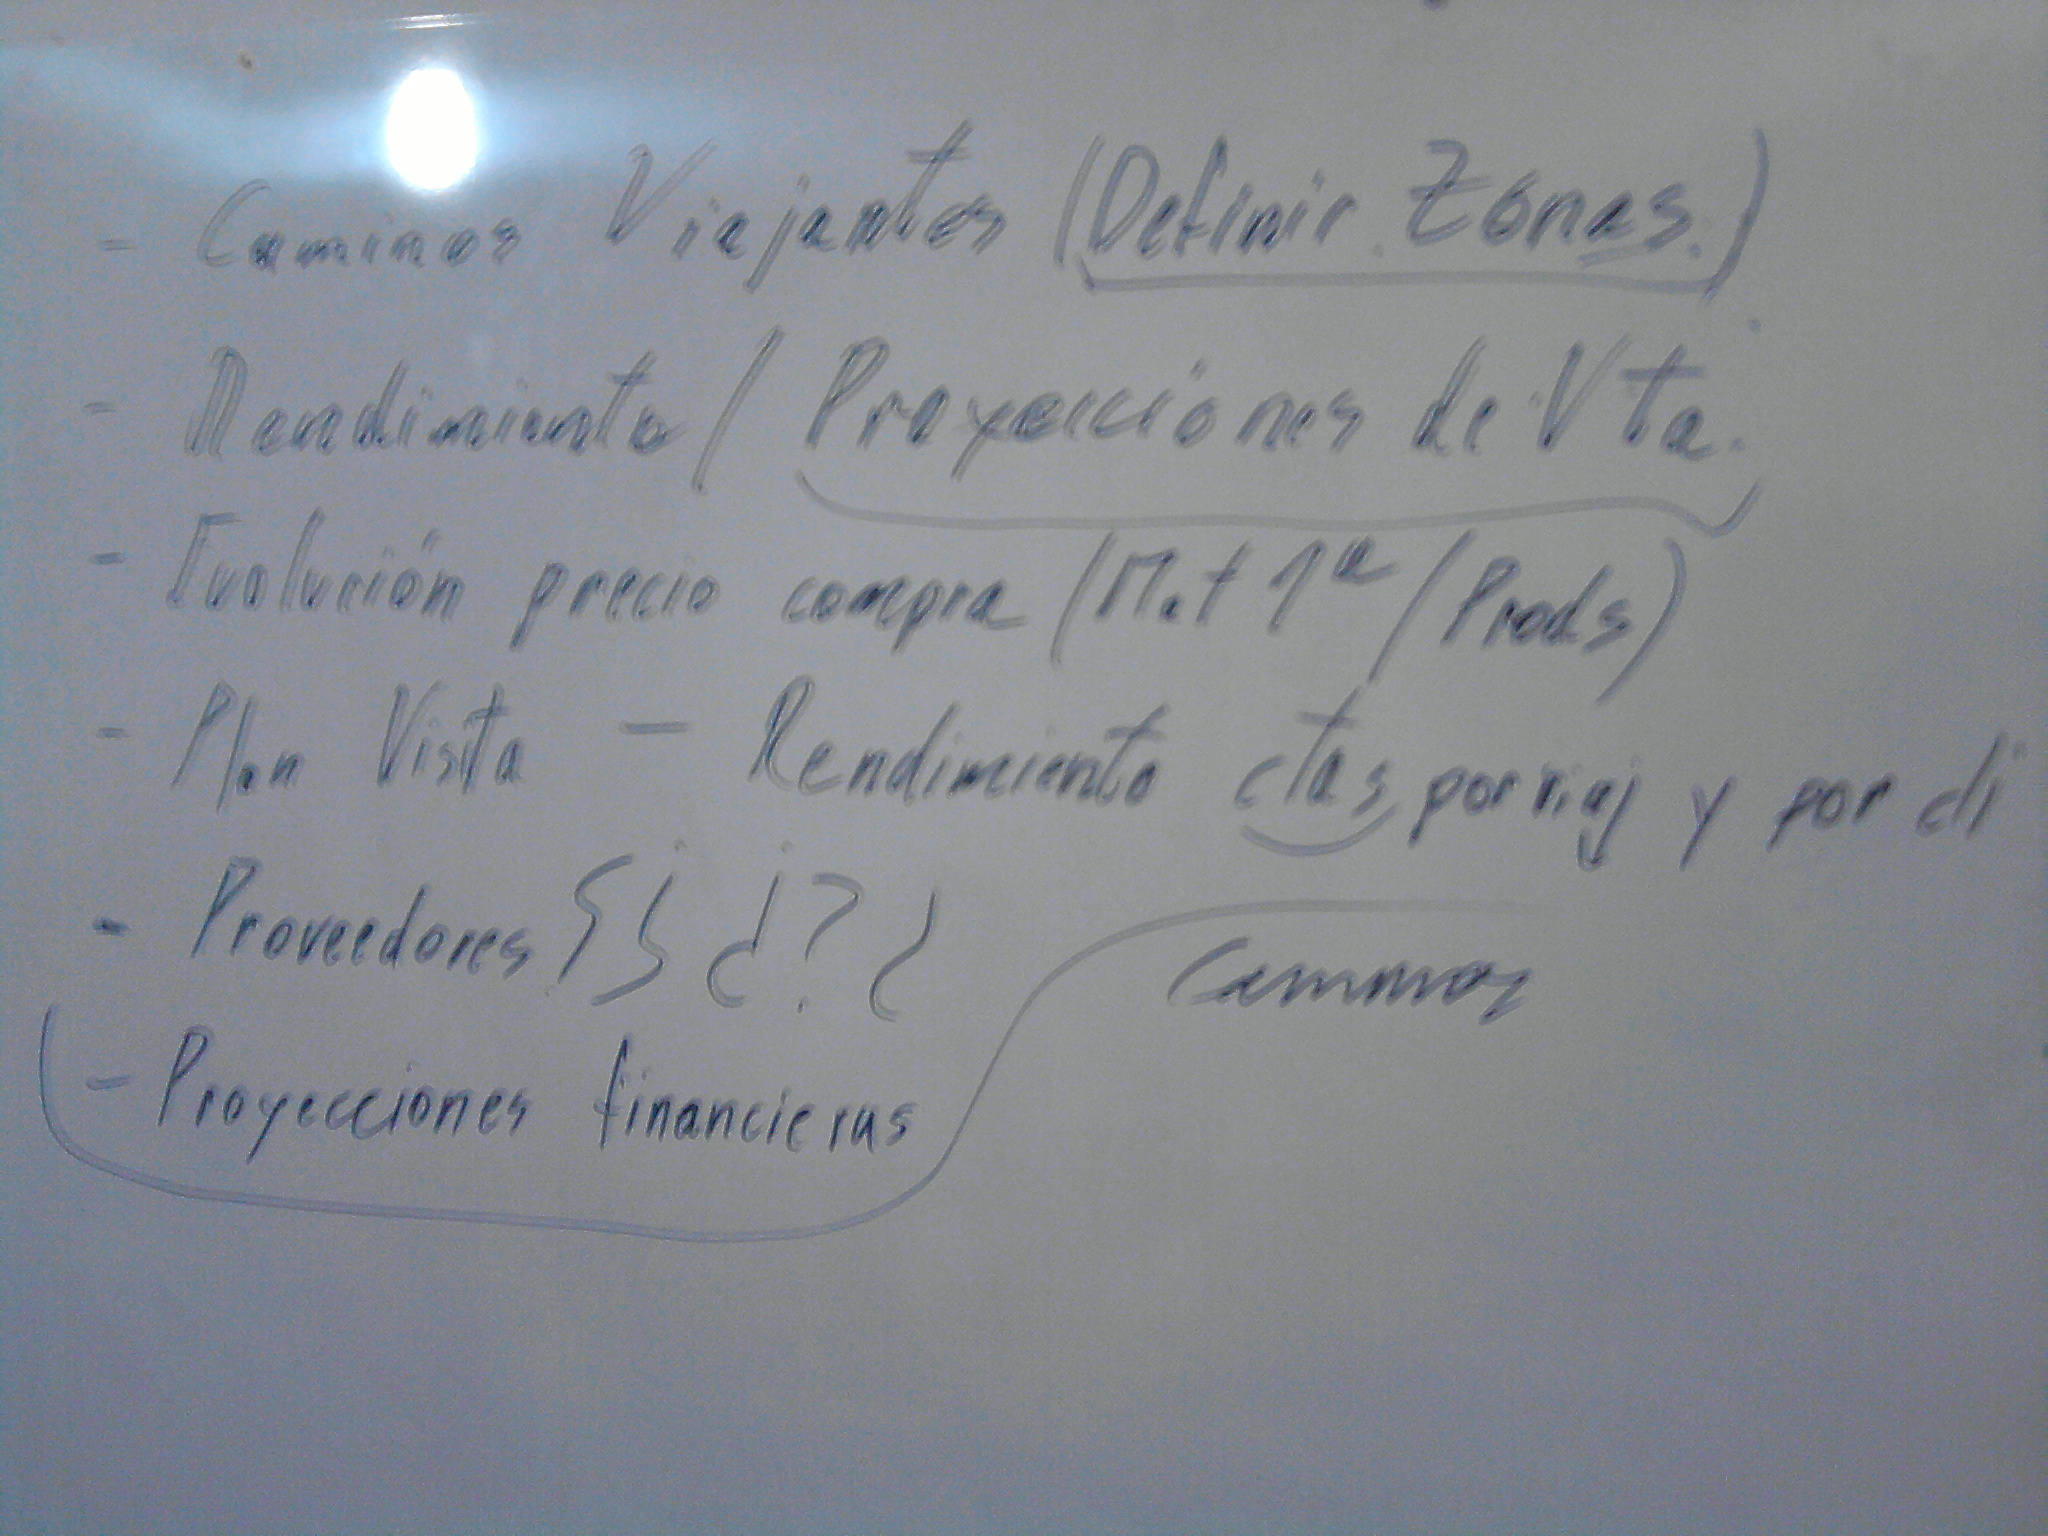 - Caminos Viajantes (Definir Zonas.)
- Rendimiento / Proyecciones de Vta.
- Evolución precio compra (Mat 1ª / Prods)
- Plan Visita - Rendimiento ctas por viaj y por cli
- Proveedores ¿?
Caminos
- Proyecciones financieras